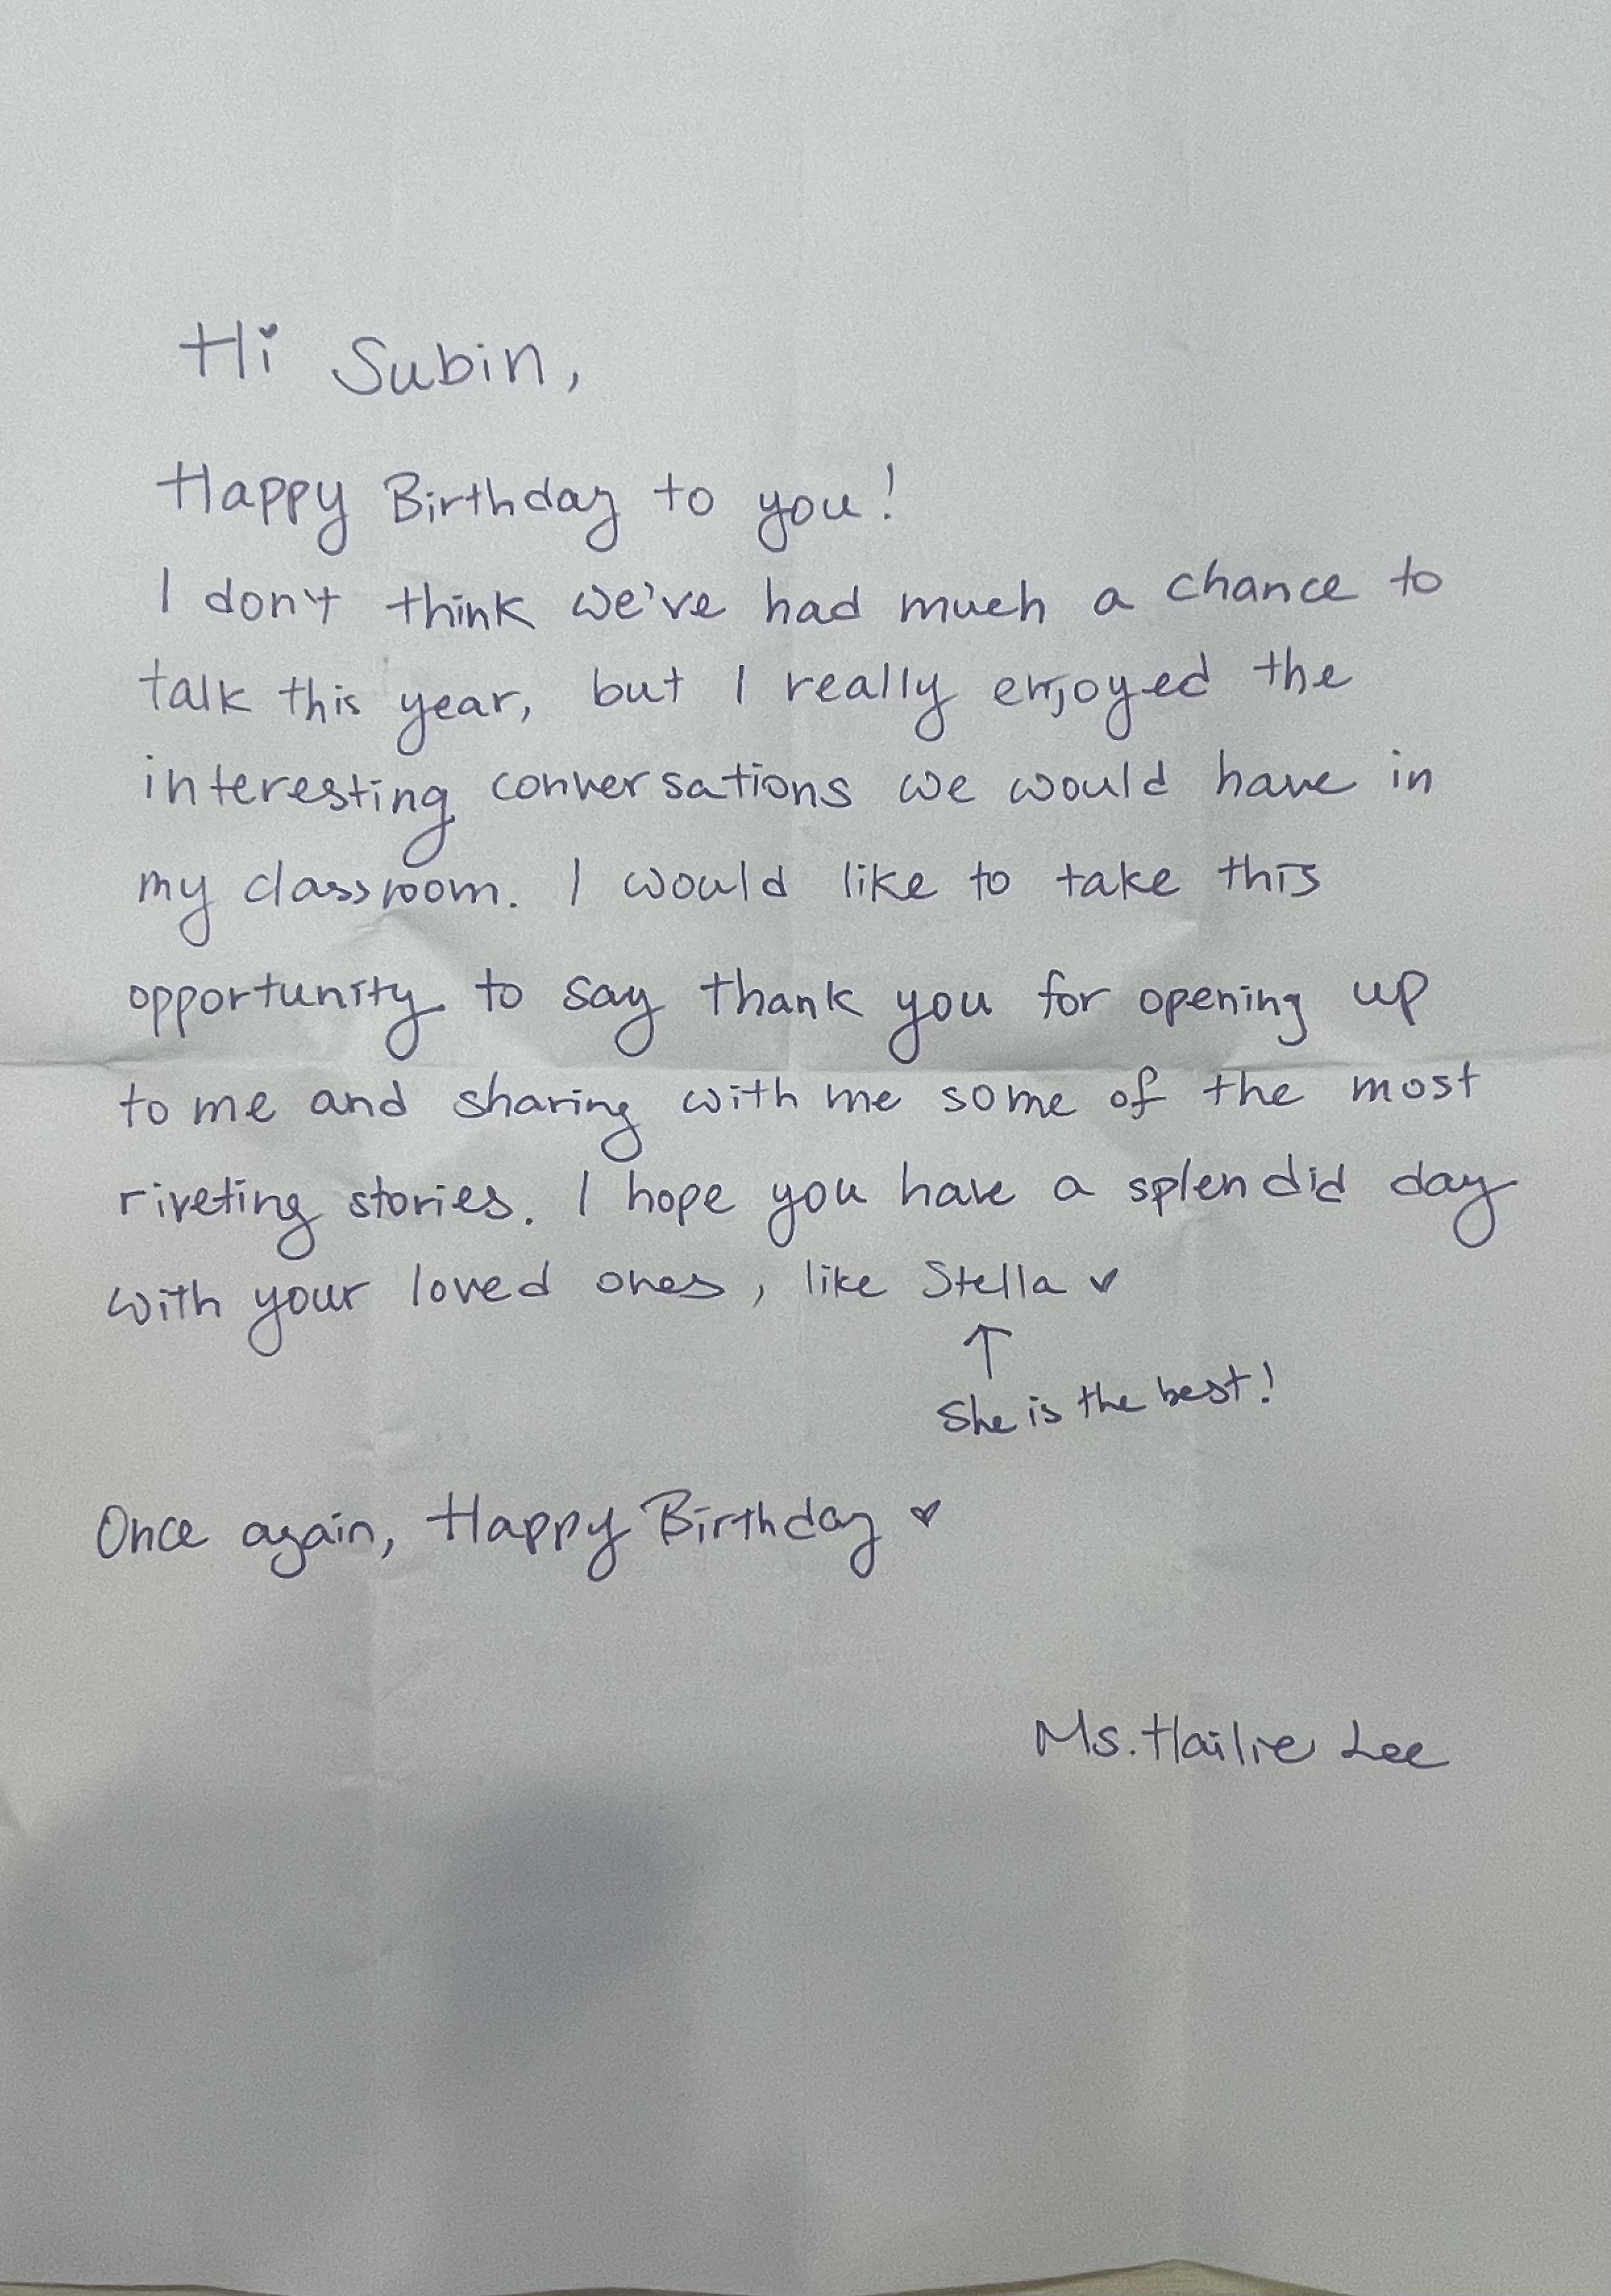 Hi Subin,
Happy Birthday to you!
I don't think we've had much a chance to
talk this year, but I really enjoyed the
interesting conversations we would have in
my classroom. I would like to take this
opportunity to say thank you for opening up
to me and sharing with me some of the most
riveting stories. I hope you have a splendid day
with your loved ones, like Stella ♥
↑
She is the best!
Once again, Happy Birthday ♥
Ms. Hailie Lee